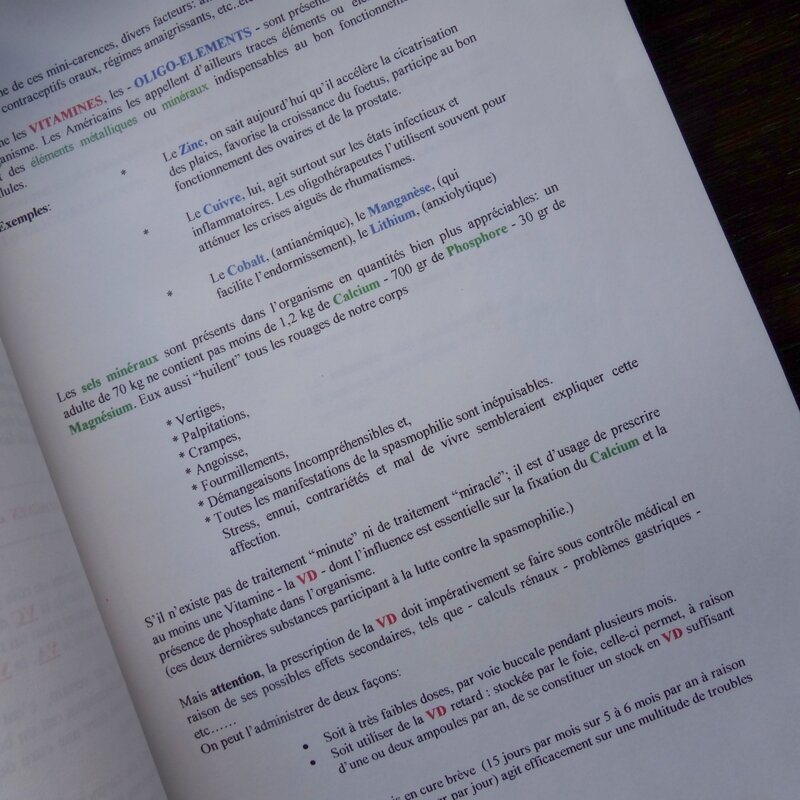 ne de ces mini-carences, divers facteurs:
contraceptifs oraux, régimes amaigrissants, etc..
ne les VITAMINES, les - OLIGO-ELEMENTS - sont
anisme. Les Américains les appellent d'ailleurs traces éléments ou
des éléments métalliques ou minéraux indispensables au bon
lules.
Exemples:
* Le Zinc, on sait aujourd'hui qu'il accélère la cicatrisation
des plaies, favorise la croissance du foetus, participe au bon
fonctionnement des ovaires et de la prostate.
* Le Cuivre, lui, agit surtout sur les états infectieux et
inflammatoires. Les oligothérapeutes l'utilisent souvent pour
atténuer les crises aiguës de rhumatismes.
* Le Cobalt, (antianémique), le Manganèse, (qui
facilite l'endormissement), le Lithium, (anxiolytique)
Les sels minéraux sont présents dans l'organisme en quantités bien plus appréciables: un
adulte de 70 kg ne contient pas moins de 1,2 kg de Calcium - 700 gr de Phosphore - 30 gr de
Magnésium. Eux aussi "huilent" tous les rouages de notre corps
* Vertiges,
* Palpitations,
* Crampes,
* Angoisse,
* Fourmillements,
* Démangeaisons Incompréhensibles et,
* Toutes les manifestations de la spasmophilie sont inépuisables.
Stress, ennui, contrariétés et mal de vivre sembleraient expliquer cette
affection.
S'il n'existe pas de traitement "minute" ni de traitement "miracle"; il est d'usage de prescrire
au moins une Vitamine - la VD - dont l'influence est essentielle sur la fixation du Calcium et la
présence de phosphate dans l'organisme.
(ces deux dernières substances participent à la lutte contre la spasmophilie.)
Mais attention, la prescription de la VD doit impérativement se faire sous contrôle médical en
raison de ses possibles effets secondaires, tels que - calculs rénaux - problèmes gastriques -
etc......
On peut l'administrer de deux façons:
• Soit à très faibles doses, par voie buccale pendant plusieurs mois.
• Soit utiliser de la VD retard : stockée par le foie, celle-ci permet, à raison
d'une ou deux ampoules par an, de se constituer un stock en VD suffisant
is en cure brève (15 jours par mois sur 5 à 6 mois par an à raison
par jour) agit efficacement sur une multitude de troubles